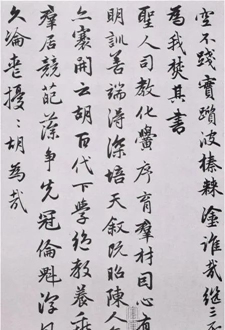 空不踐實躓彼榛棘塗誰哉繼三
為我焚其書
聖人司教化黌序育羣材因心有
明訓善端得深培天敘既昭陳人
亦褰開云胡百代下學絕教養乖
羣居競葩藻爭先冠倫魁淳
久淪喪擾〻胡為哉